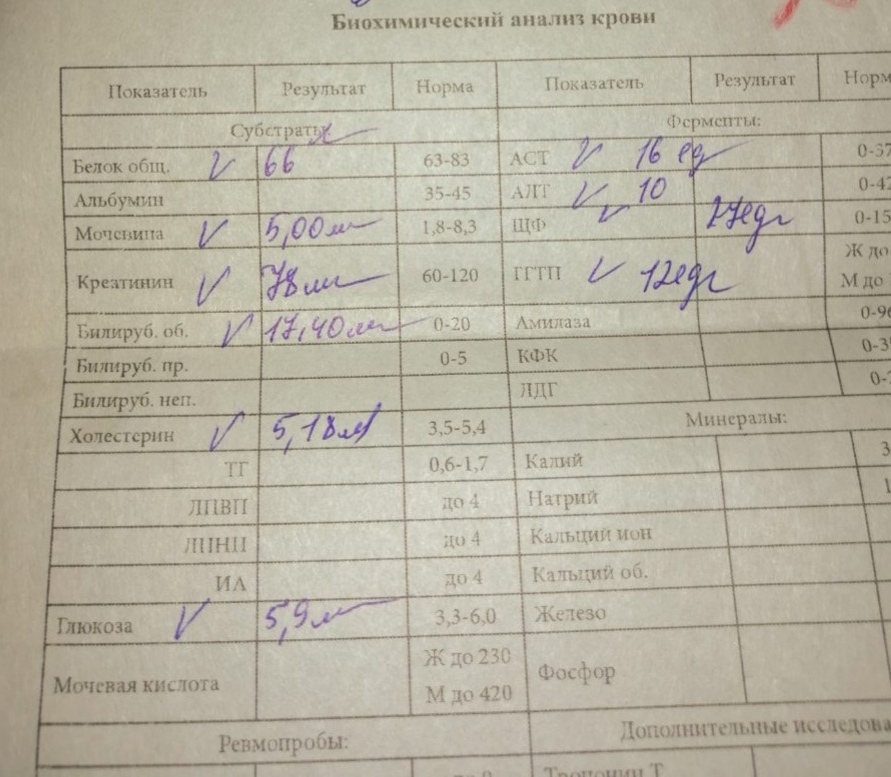 Биохимический анализ крови
Показатель Результат Норма Показатель Результат Норм
Субстраты Ферменты:
Белок общ. 66 63-83 АСТ 16 ед 0-37
Альбумин 35-45 АЛТ 10 0-42
Мочевина 5,00 1,8-8,3 ЩФ 0-15
Креатинин 78 60-120 ГГТП 12ед Ж до
М до
Билируб. об. 17,40 0-20 Амилаза 0-96
Билируб. пр. 0-5 КФК 0-3
Билируб. неп. ЛДГ 0-
Холестерин 5,18 3,5-5,4 Минералы:
ТГ 0,6-1,7 Калий 3
ЛПВП до 4 Натрий 1
ЛПНП до 4 Кальций ион
ИА до 4 Кальций об.
Глюкоза 5,9 3,3-6,0 Железо
Мочевая кислота Ж до 230 Фосфор
М до 420
Ревмопробы: Дополнительные исследова
Тропонин Т